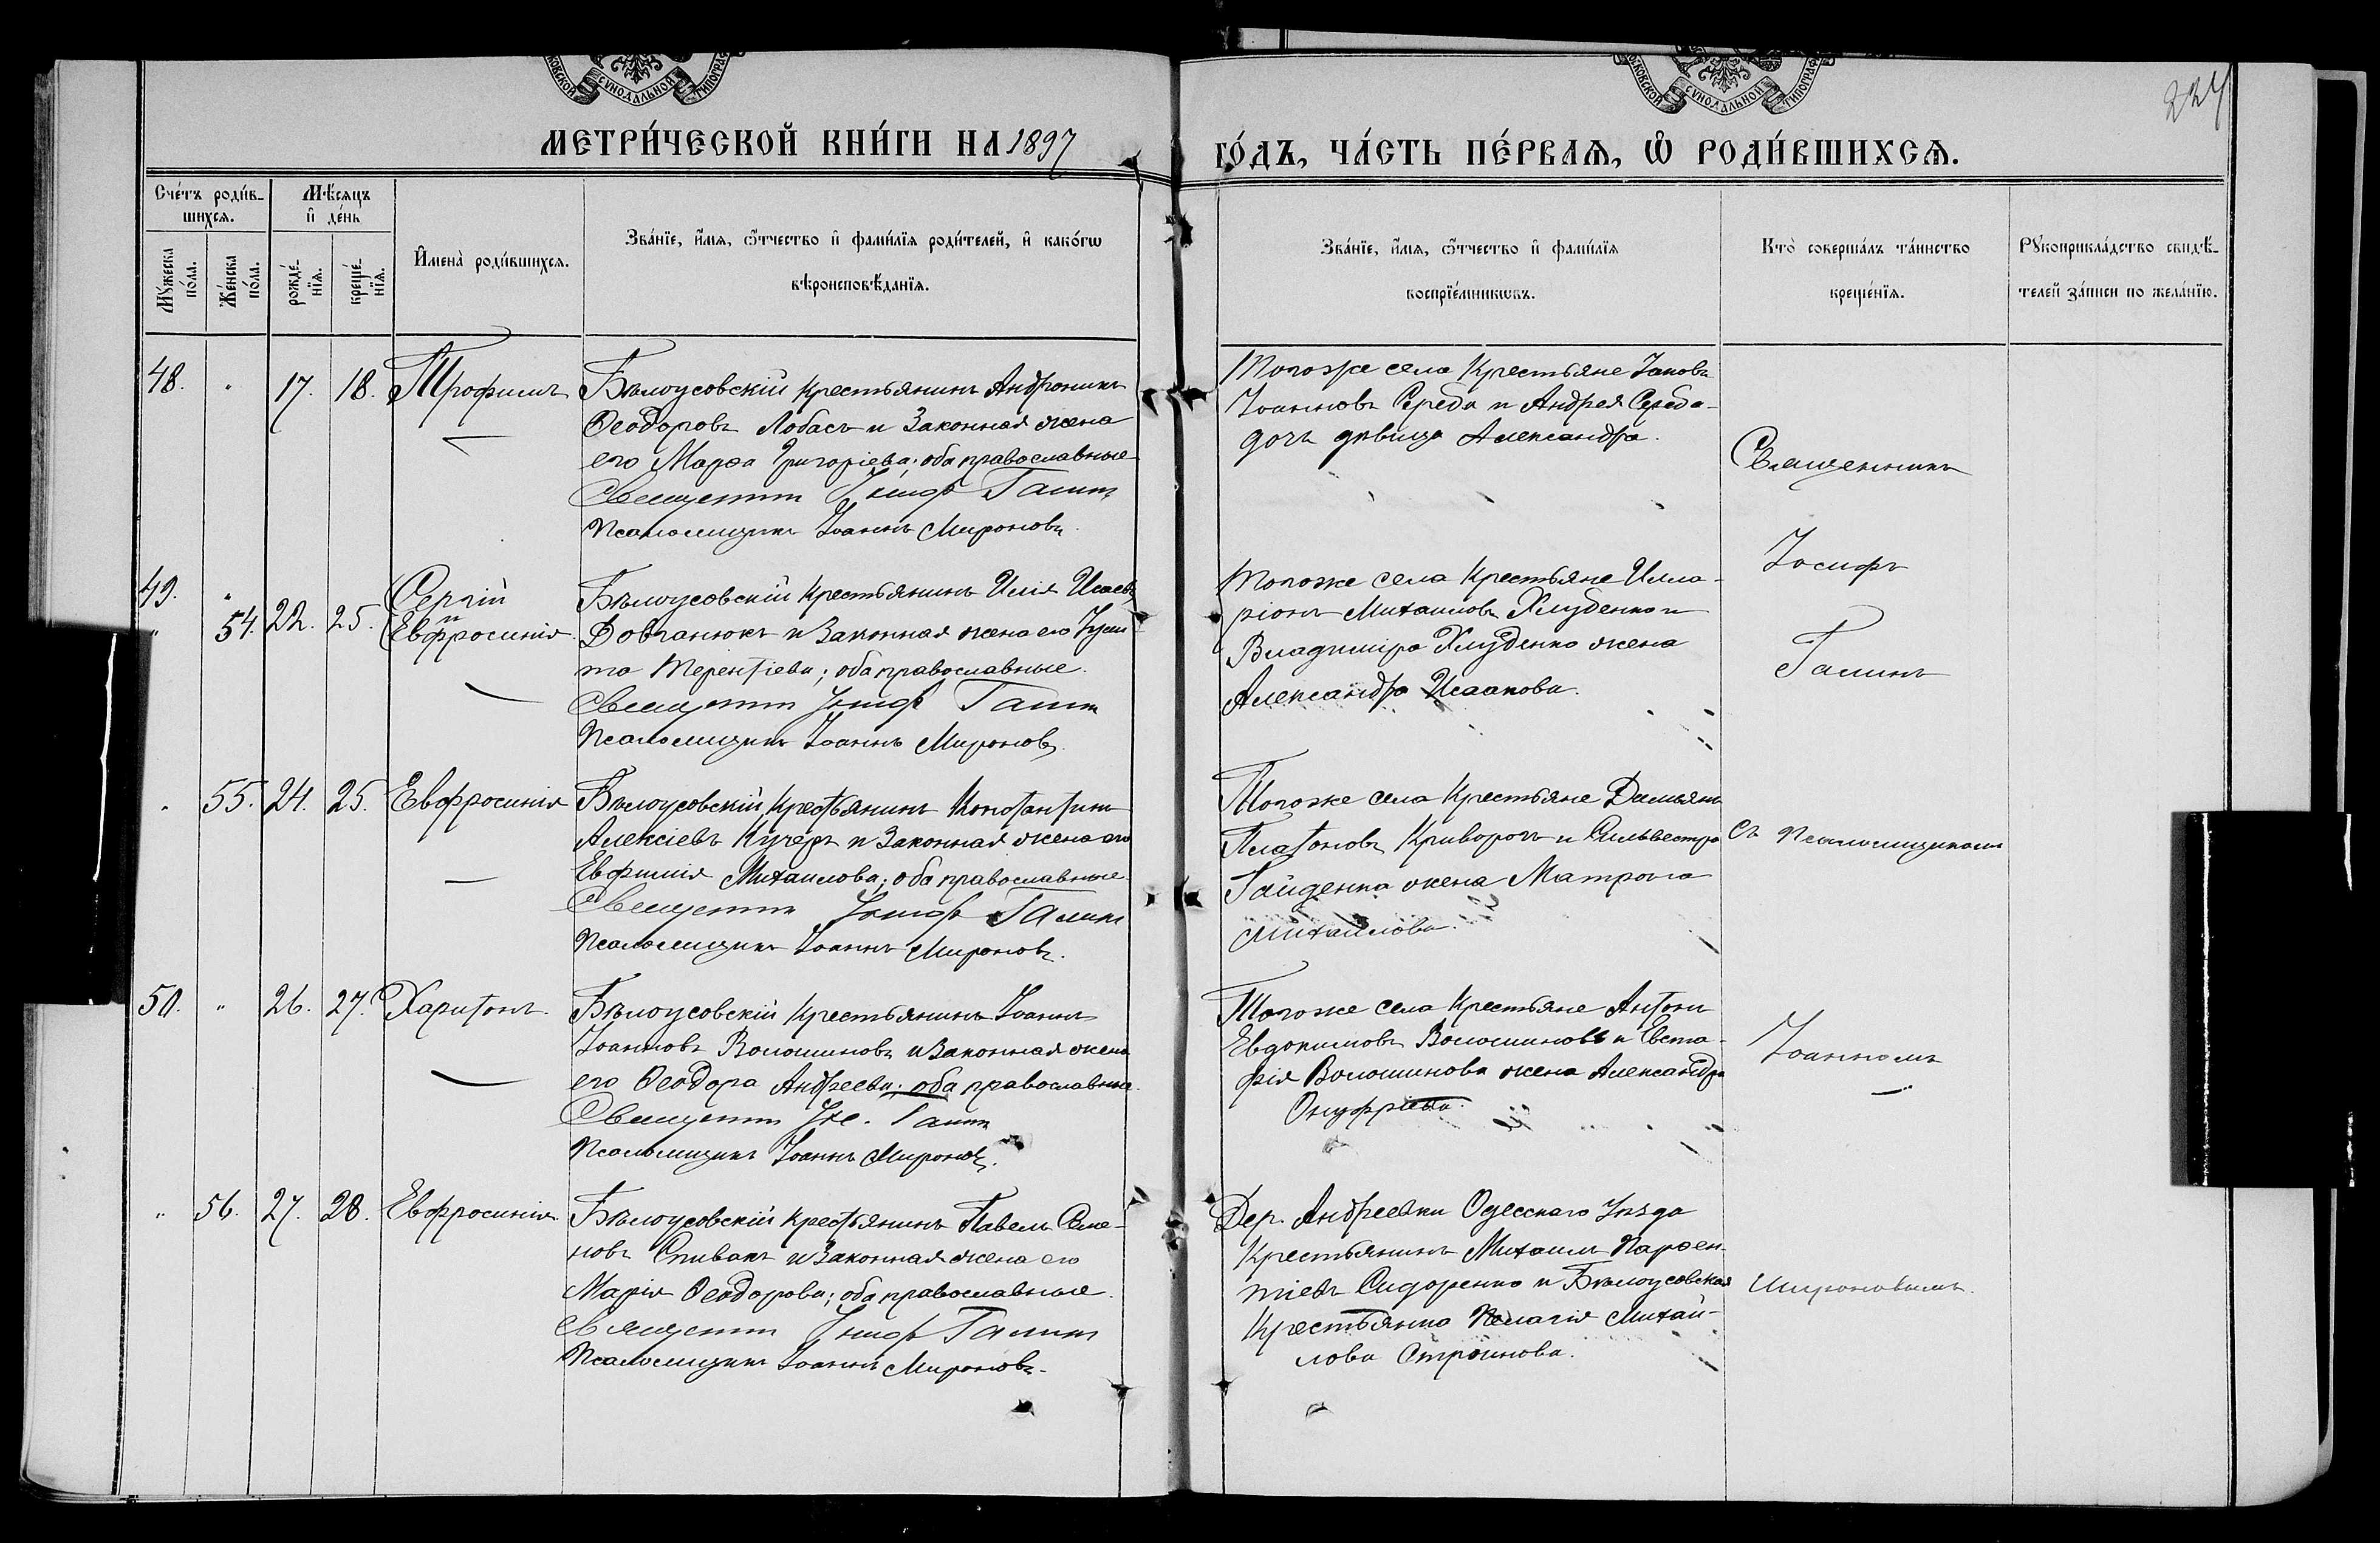 МЕТРИ́ЧЕСКОЙ КНИ́ГИ НА 1897 ГО́ДЪ, ЧА́СТЬ ПЕ́РВАѦ, Ѡ РОДИ́ВШИХСѦ.
224
Сче́тъ роди́в-
шихсѧ.
Мѣ́сѧцъ
и де́нь
Му́жеска по́ла.
Же́нска по́ла.
рожде́-
нїѧ.
креще́-
нїѧ.
Имена̀ роди́вшихсѧ.
Зва́нїе, и́мѧ, ѻ́тчество и фами́лїѧ роди́телей, и како́гѡ
вѣроисповѣ́данїѧ.
Зва́нїе, и́мѧ, ѻ́тчество и фами́лїѧ
воспрїе́мникѡвъ.
Кто̀ соверша́лъ та́инство
креще́нїѧ.
Рꙋкоприкла́дство свидѣ́-
телей за́писи по жела́нїю.
48. " 17. 18. Трофимъ
Бѣлоусовскій крестьянинъ Андроникъ
Ѳеодоровъ Лобасъ и законная жена
его Марѳа Григоріева; оба православные
Священникъ Іосифъ Галинъ
Псаломщикъ Іоаннъ Мироновъ.
Тогоже села Крестьяне Іаковъ
Іоанновъ Середа и Андрея Середа-
дочь дѣвица Александра.
49. "
" 54. 22. 25. Сергій
и
Евфросинія
Бѣлоусовскій крестьянинъ Илія Исаевъ
Довганюкъ и законная жена его Іули-
та Терентіева; оба православные.
Священникъ Іосифъ Галинъ
Псаломщикъ Іоаннъ Мироновъ.
Тогоже села Крестьяне Илла-
ріонъ Михаиловъ Хлуденко и
Владиміра Хлуденко жена
Александра Исаакова.
" 55. 24. 25. Евфросинія
Бѣлоусовскій крестьянинъ Константинъ
Алексіевъ Кучеръ и законная жена его
Евфимія Михаилова; оба православные.
Священникъ Іосифъ Галинъ
Псаломщикъ Іоаннъ Мироновъ.
Тогоже села Крестьяне Демьянъ
Платоновъ Криворогъ и Сильвестра
Гайденка жена Матрона
Михаилова.
50. " 26. 27. Харитонъ.
Бѣлоусовскій крестьянинъ Іоаннъ
Іоанновъ Волошиновъ и законная жена
его Ѳеодора Андреева; оба православные.
Священникъ Іос. Галинъ
Псаломщикъ Іоаннъ Мироновъ.
Тогоже села Крестьяне Антонъ
Евдокимовъ Волошиновъ и Евста-
фія Волошинова жена Александра
Онуфріева.
" 56. 27. 28. Евфросинія
Бѣлоусовскій крестьянинъ Павелъ Семе-
новъ Спивакъ и законная жена его
Марія Ѳеодорова; оба православные.
Священникъ Іосифъ Галинъ
Псаломщикъ Іоаннъ Мироновъ.
Дер. Андреевки Одесскаго Уѣзда
Крестьянинъ Михаилъ Парѳен-
тіевъ Сидоренко и Бѣлоусовская
Крестьянка Пелагія Михай-
лова Строинова.
Священникъ
Іосифъ
Галинъ
съ Псаломщикомъ
Іоанномъ
Мироновымъ.